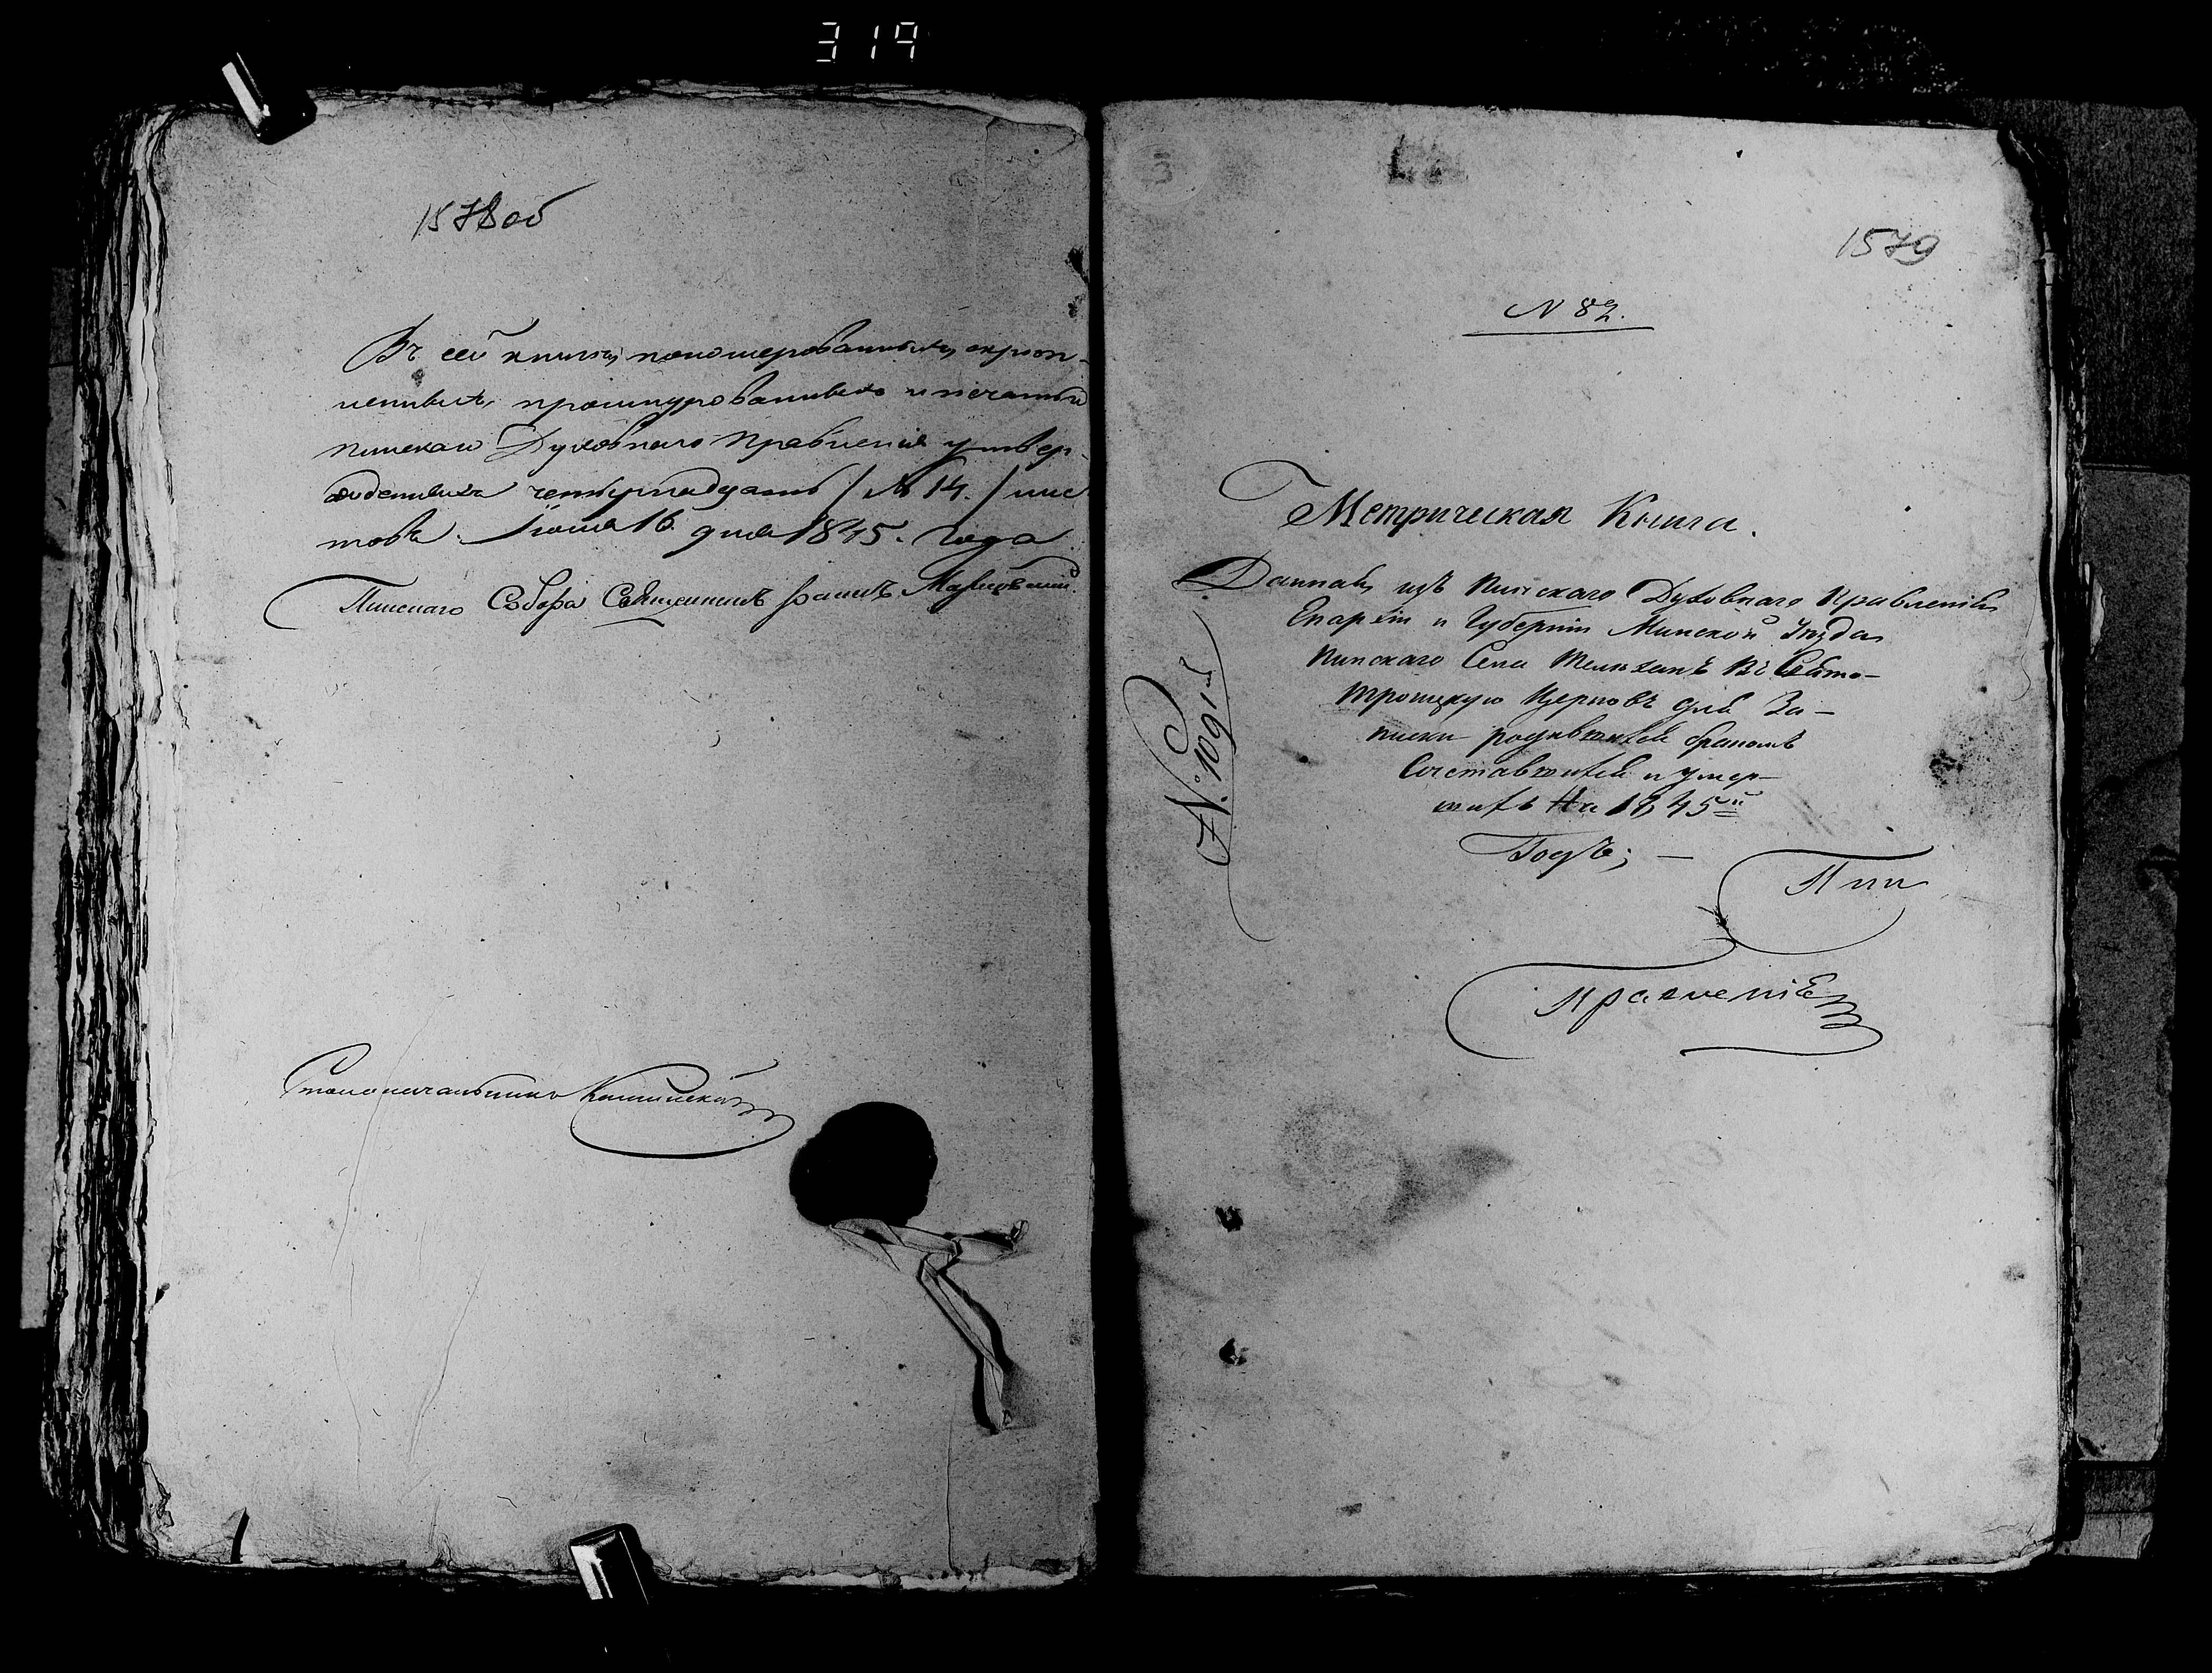 319
1578 об
Въ сей книгѣ пономерованныхъ, скреп-
ленныхъ, прошнурованныхъ и печатью
пинскаго Духовнаго Правленія утвер-
жденныхъ четырнадцать / № 14. / лис
товъ. Іюня 16 дня 1845. Года
Пинскаго Собора Священникъ
Столоначальникъ
1579
N 82.
Метрическая Книга.
Данная изъ Пинскаго Духовнаго Правленія
Епархіи и Губерніи Минской Уѣзда
Пинскаго Села Телеханъ Въ Свято-
троицкую Церковь для За-
писки родившихся бракомъ
Сочетавшихся и умер-
шихъ На 1845й
Годъ; —
N. 1091
Пин
Правленіе